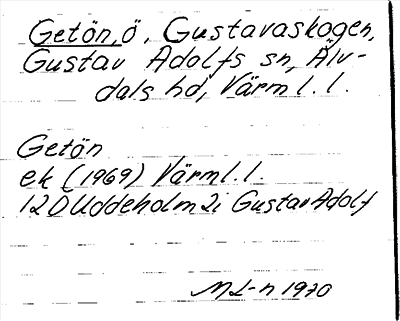 Getön, ö, Gustavaskogen,
Gustav Adolfs sn, Älv-
dals hd, Värml.l.
Getön
ek (1969) Värml.l.
12D Uddeholm 2i Gustav Adolf
ML-n 1970